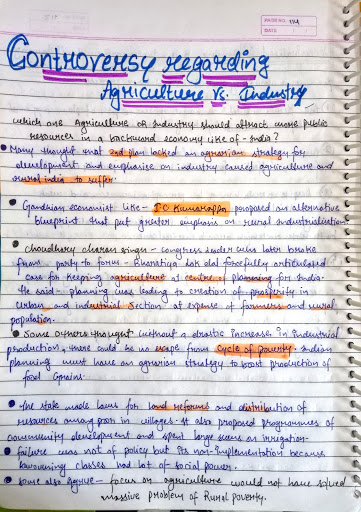 PAGE NO. 114
DATE
Controversy regarding
Agriculture vs. Industry
which one Agriculture or Industry should attract more public
resources in a backward economy like of - India?
Many thought that 2nd plan lacked an agrarian strategy for
development and emphasise on industry caused agriculture and
rural india to suffer.
Gandhian economist like - J C Kumarappa proposed an alternative
blueprint that put greater emphasis on rural industrialisation.
Choudhary charan singh - congress leader who later broke
from party to form - Bharatiya lok dal forcefully articulated
case for keeping agriculture at centre of planning for India.
He said - planning was leading to creation of prosperity in
urban and industrial section at expense of farmers and rural
population.
Some others thought without a drastic increase in industrial
production, there could be no escape from cycle of poverty. Indian
planning must have an agrarian strategy to boost production of
food grains.
The state made laws for land reforms and distribution of
resources among poor in villages. It also proposed programmes of
community development and spent large sums on irrigation.
failure was not of policy but its non-implementation because
landowning classes had lot of social power.
Some also argue - focus on agriculture would not have solved
massive problem of Rural poverty.